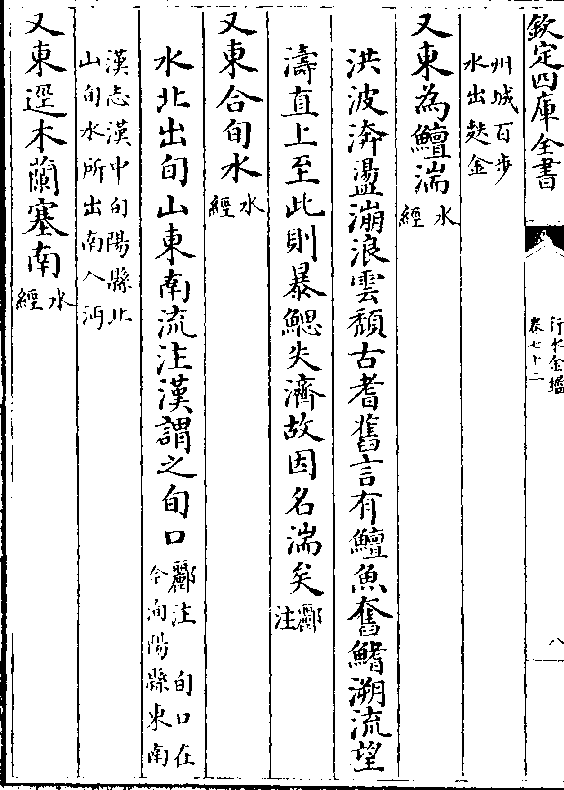 欽定四庫全書
行水金鑑
卷七十二
八
州城百步
水出麩金
又東為鱣湍水經
洪波渀盪漰浪雲頹古耆舊言有鱣魚奮鰭溯流望
濤直上至此則暴鰓失濟故因名湍矣酈注
又東合旬水水經
水北出旬山東南流注漢謂之旬口酈注 旬口在今洵陽縣東南
漢志漢中旬陽縣北
山旬水所出南入沔
又東逕木蘭塞南水經